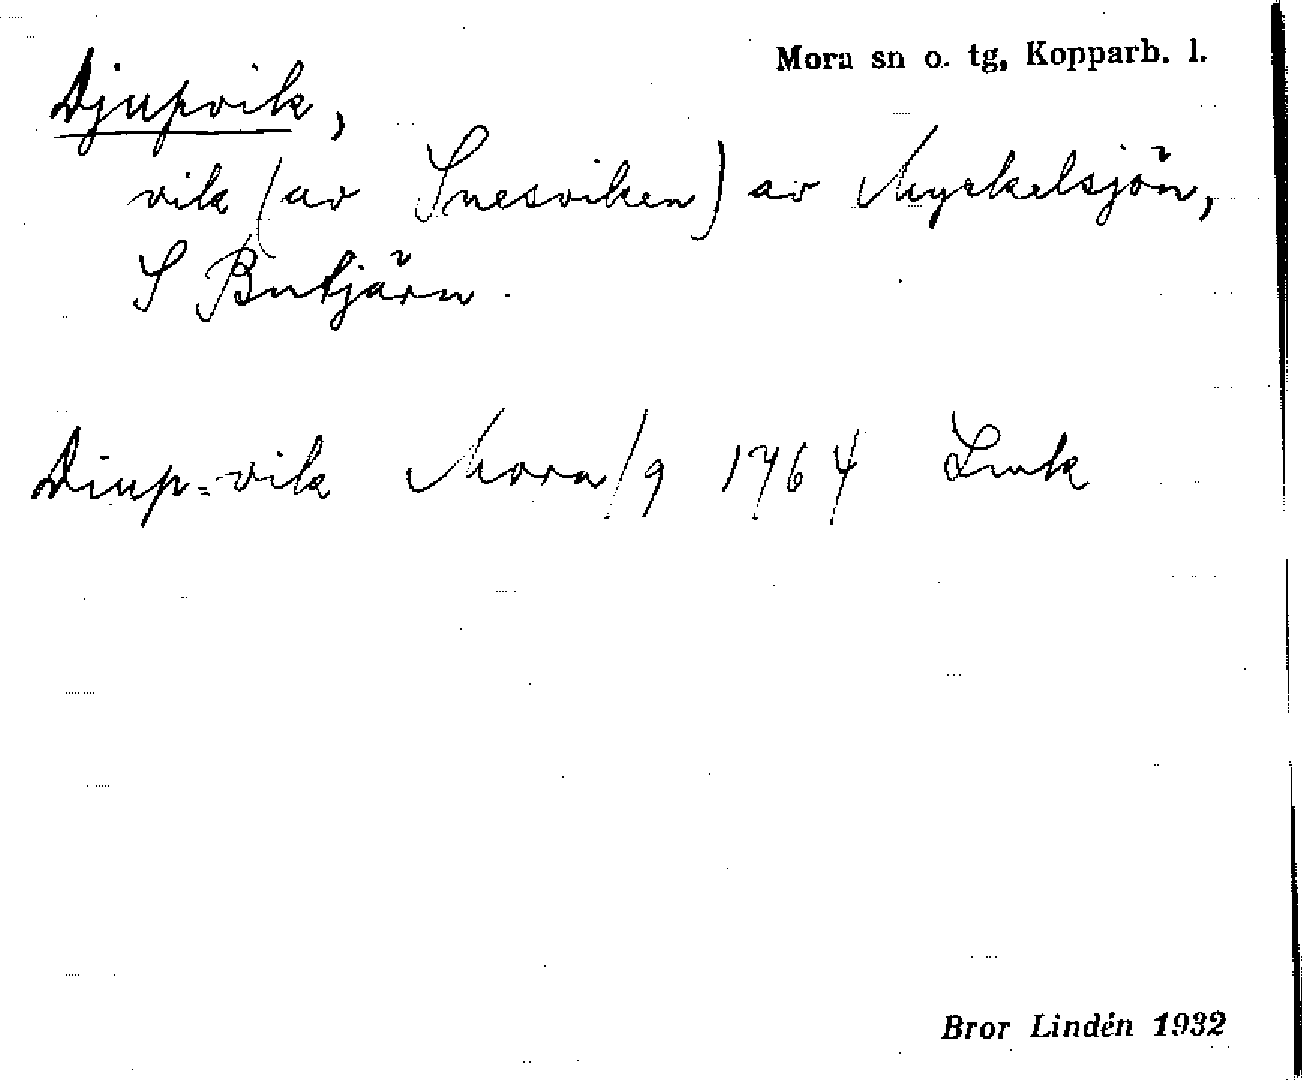 Mora sn o. tg, Kopparb. l.
Djupvik,
vik (av Snesviken) av Myckelsjön,
S Butjärn.
Diup=vik Mora/9 1764 Lmk
Bror Lindén 1932